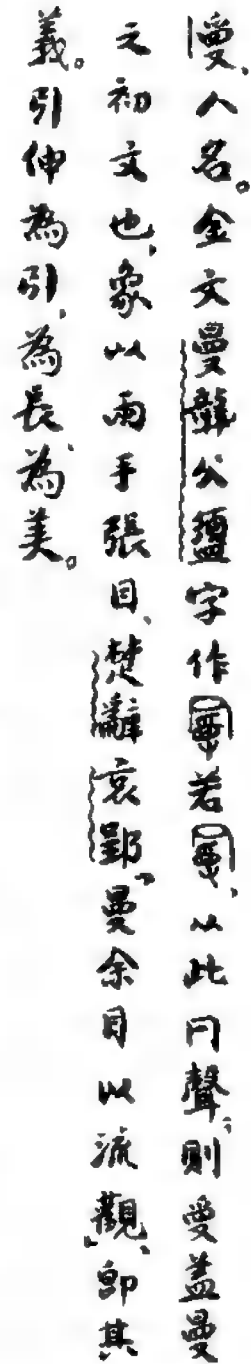 人名。金文曼龔父盨字作若，从此冃聲，則蓋曼
之初文也，象以兩手張目，楚辭哀郢“曼余目以流觀”，即其
義。引伸為引，為長，為美。